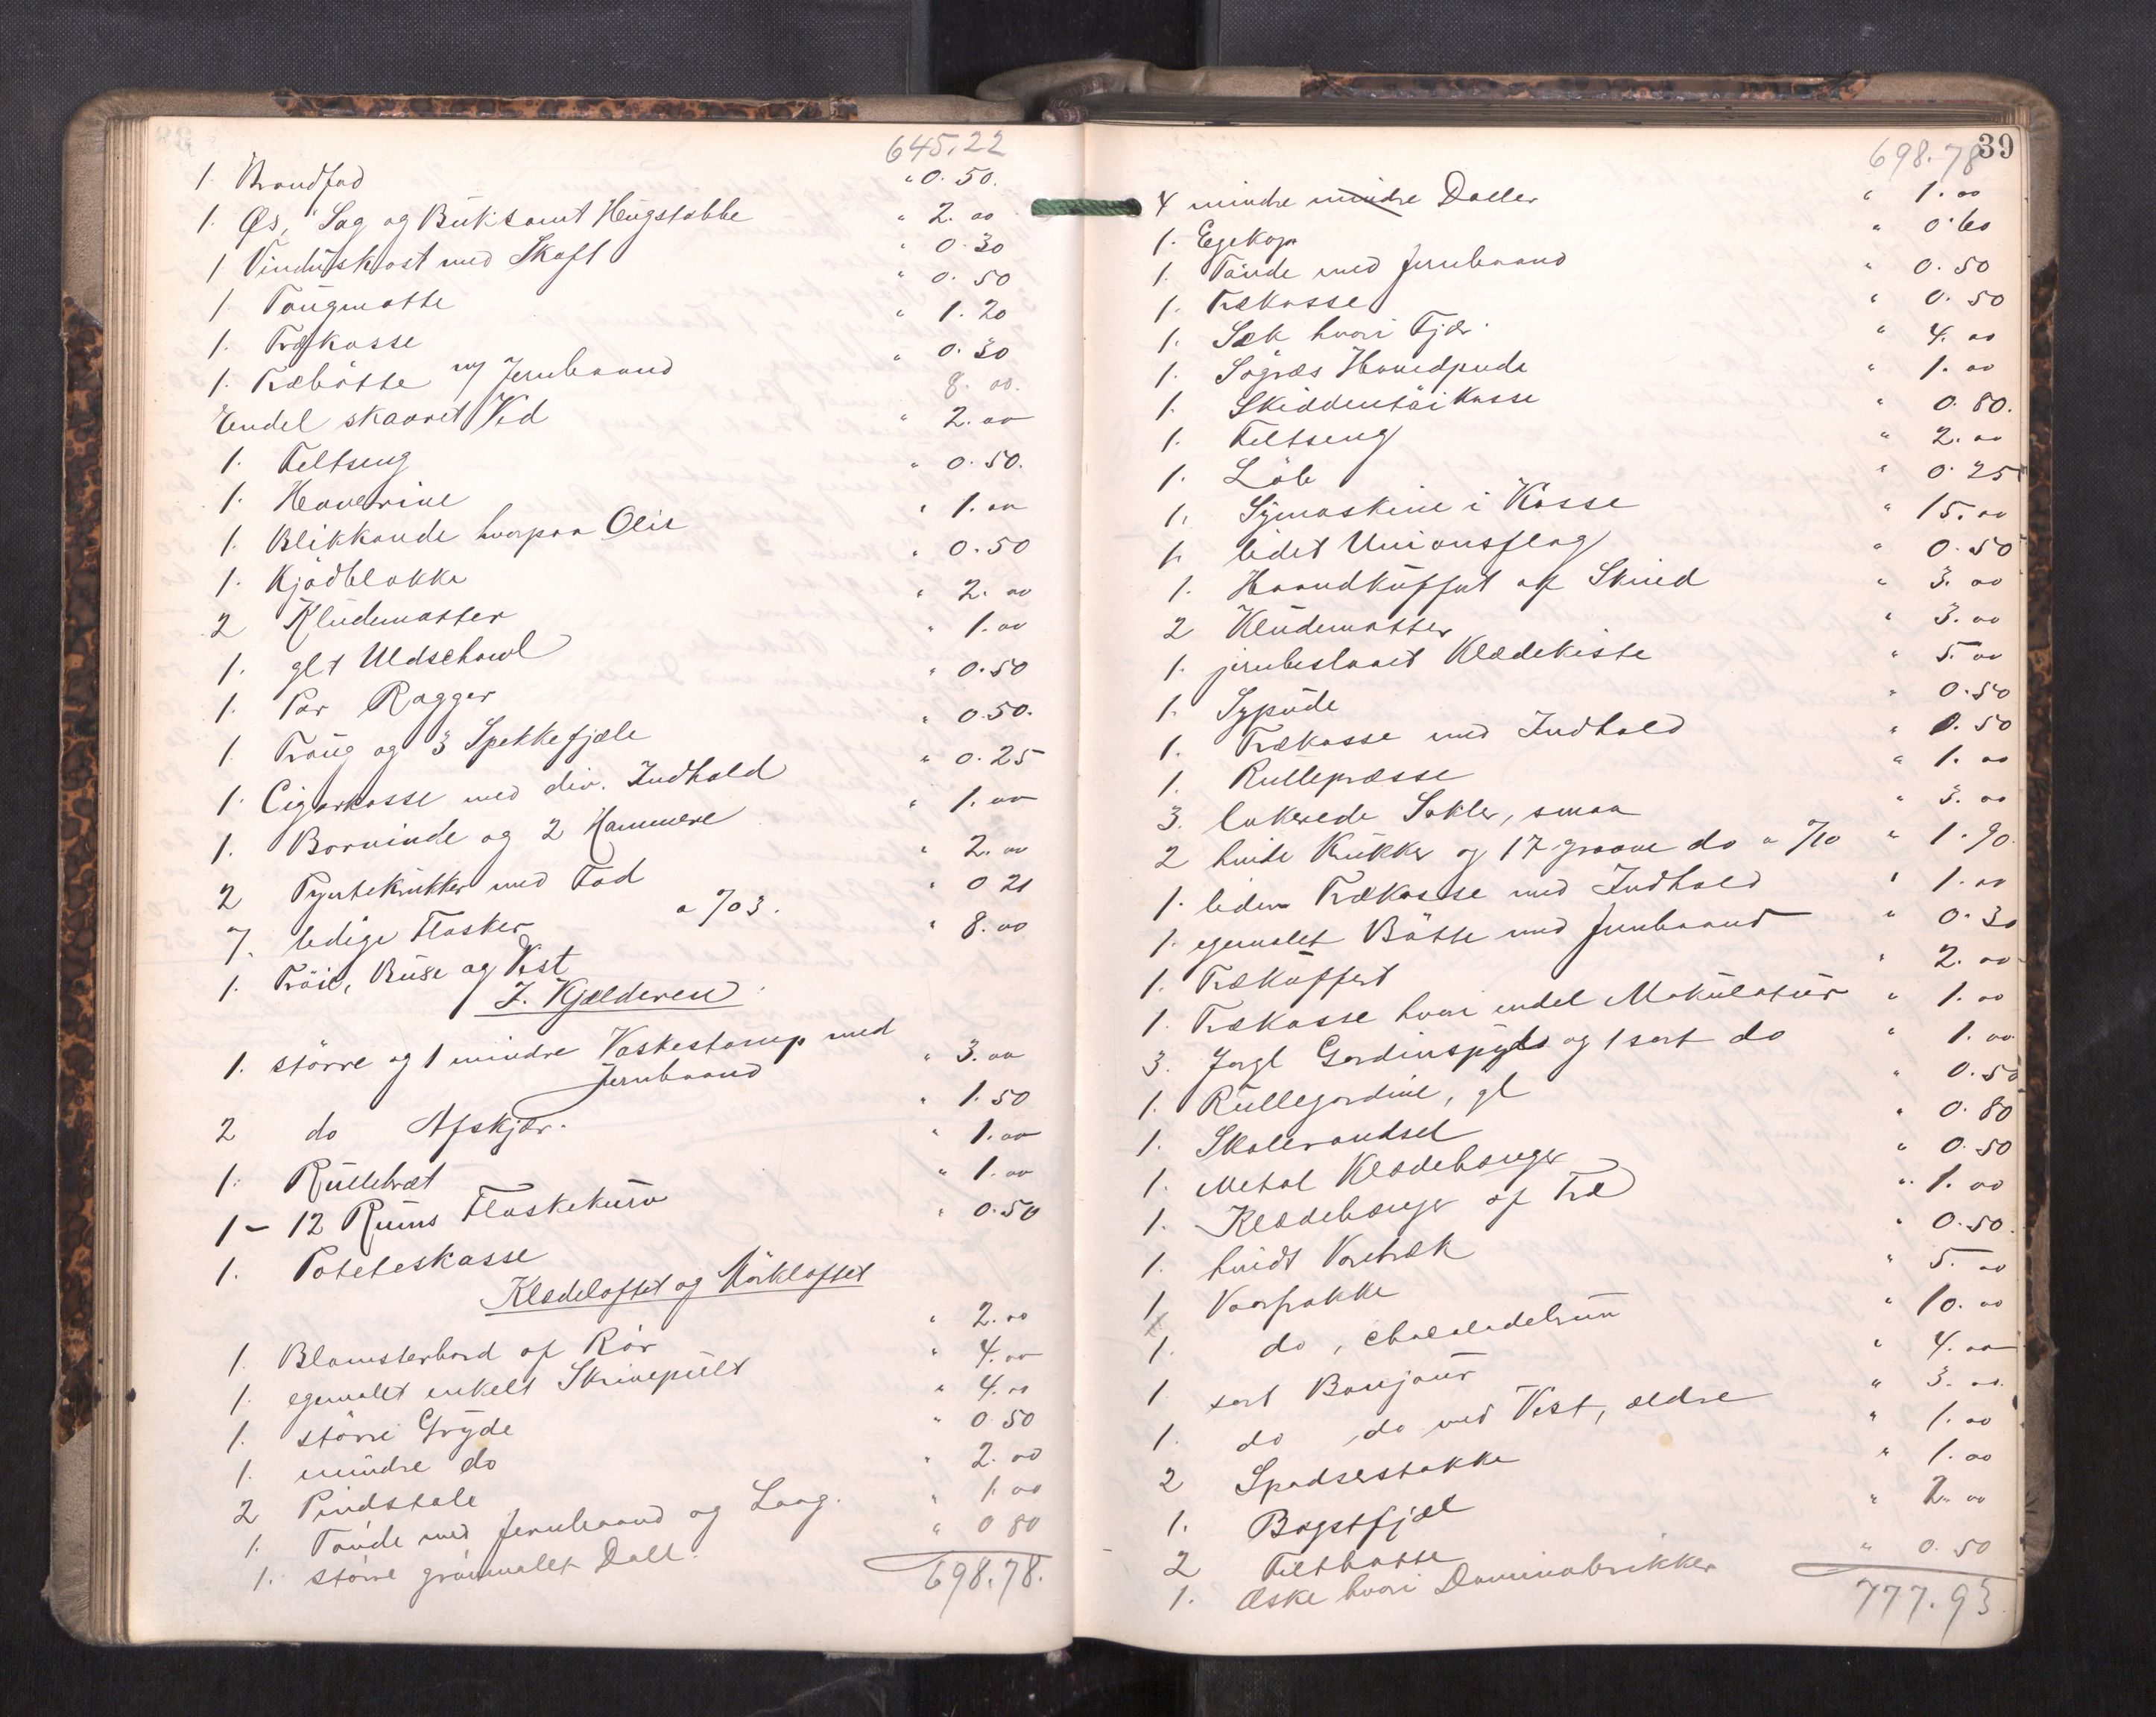 645.22
1. Brandfad " 0.50.
1. Øs, Sag og Buk samt Hugstabbe " 2.00
1 Vinduskost med Skaft " 0.30
1. Taugmatte " 0.50
1. Trækasse " 1.20
1. Træbøtte m/ Jernbaand " 0.30
Endel skaaret Ved 8.00.
1. Feltseng " 2.00
1. Haverive " 0.50.
1. Blikkande hvorpaa Olie " 1.00
1. Kjødblokke " 0.50
2 Kludematter " 2.00
1. glt Uldschawl " 1.00
1. Par Ragger " 0.50
1 Traug og 3 Spekkefjæle " 0.50.
1. Cigarkasse med div. Indhold " 0.25
1. Borvinde og 2 Hammere " 1.00
2 Pyntekrukker med Fad " 2.00
7. ledige Flasker a 703. " 0 21
1. Trøie, Buxe og Vest " 8.00
I. Kjælderen
1. større og 1 mindre Vaskestamp med
Jernbaand " 3.00
2 do Afskjær. " 1.50
1. Rullebræt " 1.00
1 – 12 Rums Flaskekurv " 1.00
1. Poteteskasse " 0.50
Klædeloftet og Mørkloftet
1. Blomsterbord af Rør " 2.00
1. egemalt enkelt Skrivepult " 4.00
1. større Gryde " 4.00
1. mindre do " 0 50
2 Pindstole " 2.00
1. Tønde med Jernbaand og Laag. " 1.00
1. større grønmalet Dall. " 0 80
698.78.
39
698.78
4 mindre mindre Daller " 1.00
1. Egekop " 0.60
1. Tønde med Jernbaand " 0.50
1. Trækasse " 0.50
1. Sæk hvori Fjær. " 4.00
1. Søgræs Hovedpude " 1.00
1. Skiddentøi Kasse " 0.80.
1. Feltseng " 2.00
1. Løb " 0.25
1. Symaskine i Kasse " 15.00
1. lidet Unionsflag " 0.50
1. Haandkuffert af Skind " 3.00
2 Kludematter " 3.00
1. jernbeslaaet Klædekiste " 5.00
1. Sypude " 0.50
1. Trækasse med Indhold " 0.50
1. Rullepræsse " 1.00
3. lakerede Sokler, smaa " 3.00
2 hvide Krukker og 17 graae do a 7/10 " 1.90
1. liden Trækasse med Indhold " 1.00
1. egemalet Bøtte med Jernbaand " 0.30
1. Trækuffert " 2.00
1. Trækasse hvori endel Makulatur " 1.00
3. forgl Gardinspyd og 1 sort do " 1.00
1. Rullegardine, gl " 0.50
1. Skolerandsel " 0.80
1. Metal Klædehænger " 0.50
1. Klædehænger af Træ " 1.00
1. hvidt Voretræk " 0.50.
1 Vaarfrakke " 5.00
1. do, chocoladebrun " 10.00
1 sort Bonjour " 4.00
1. do do med Vest, ældre " 3.00
2 Spadserstokke " 1.00
1. Bagstfjæl " 1.00
2 Filthatte " 2.00
1. Æske hvori Dominobrikker " 0.50
777.93